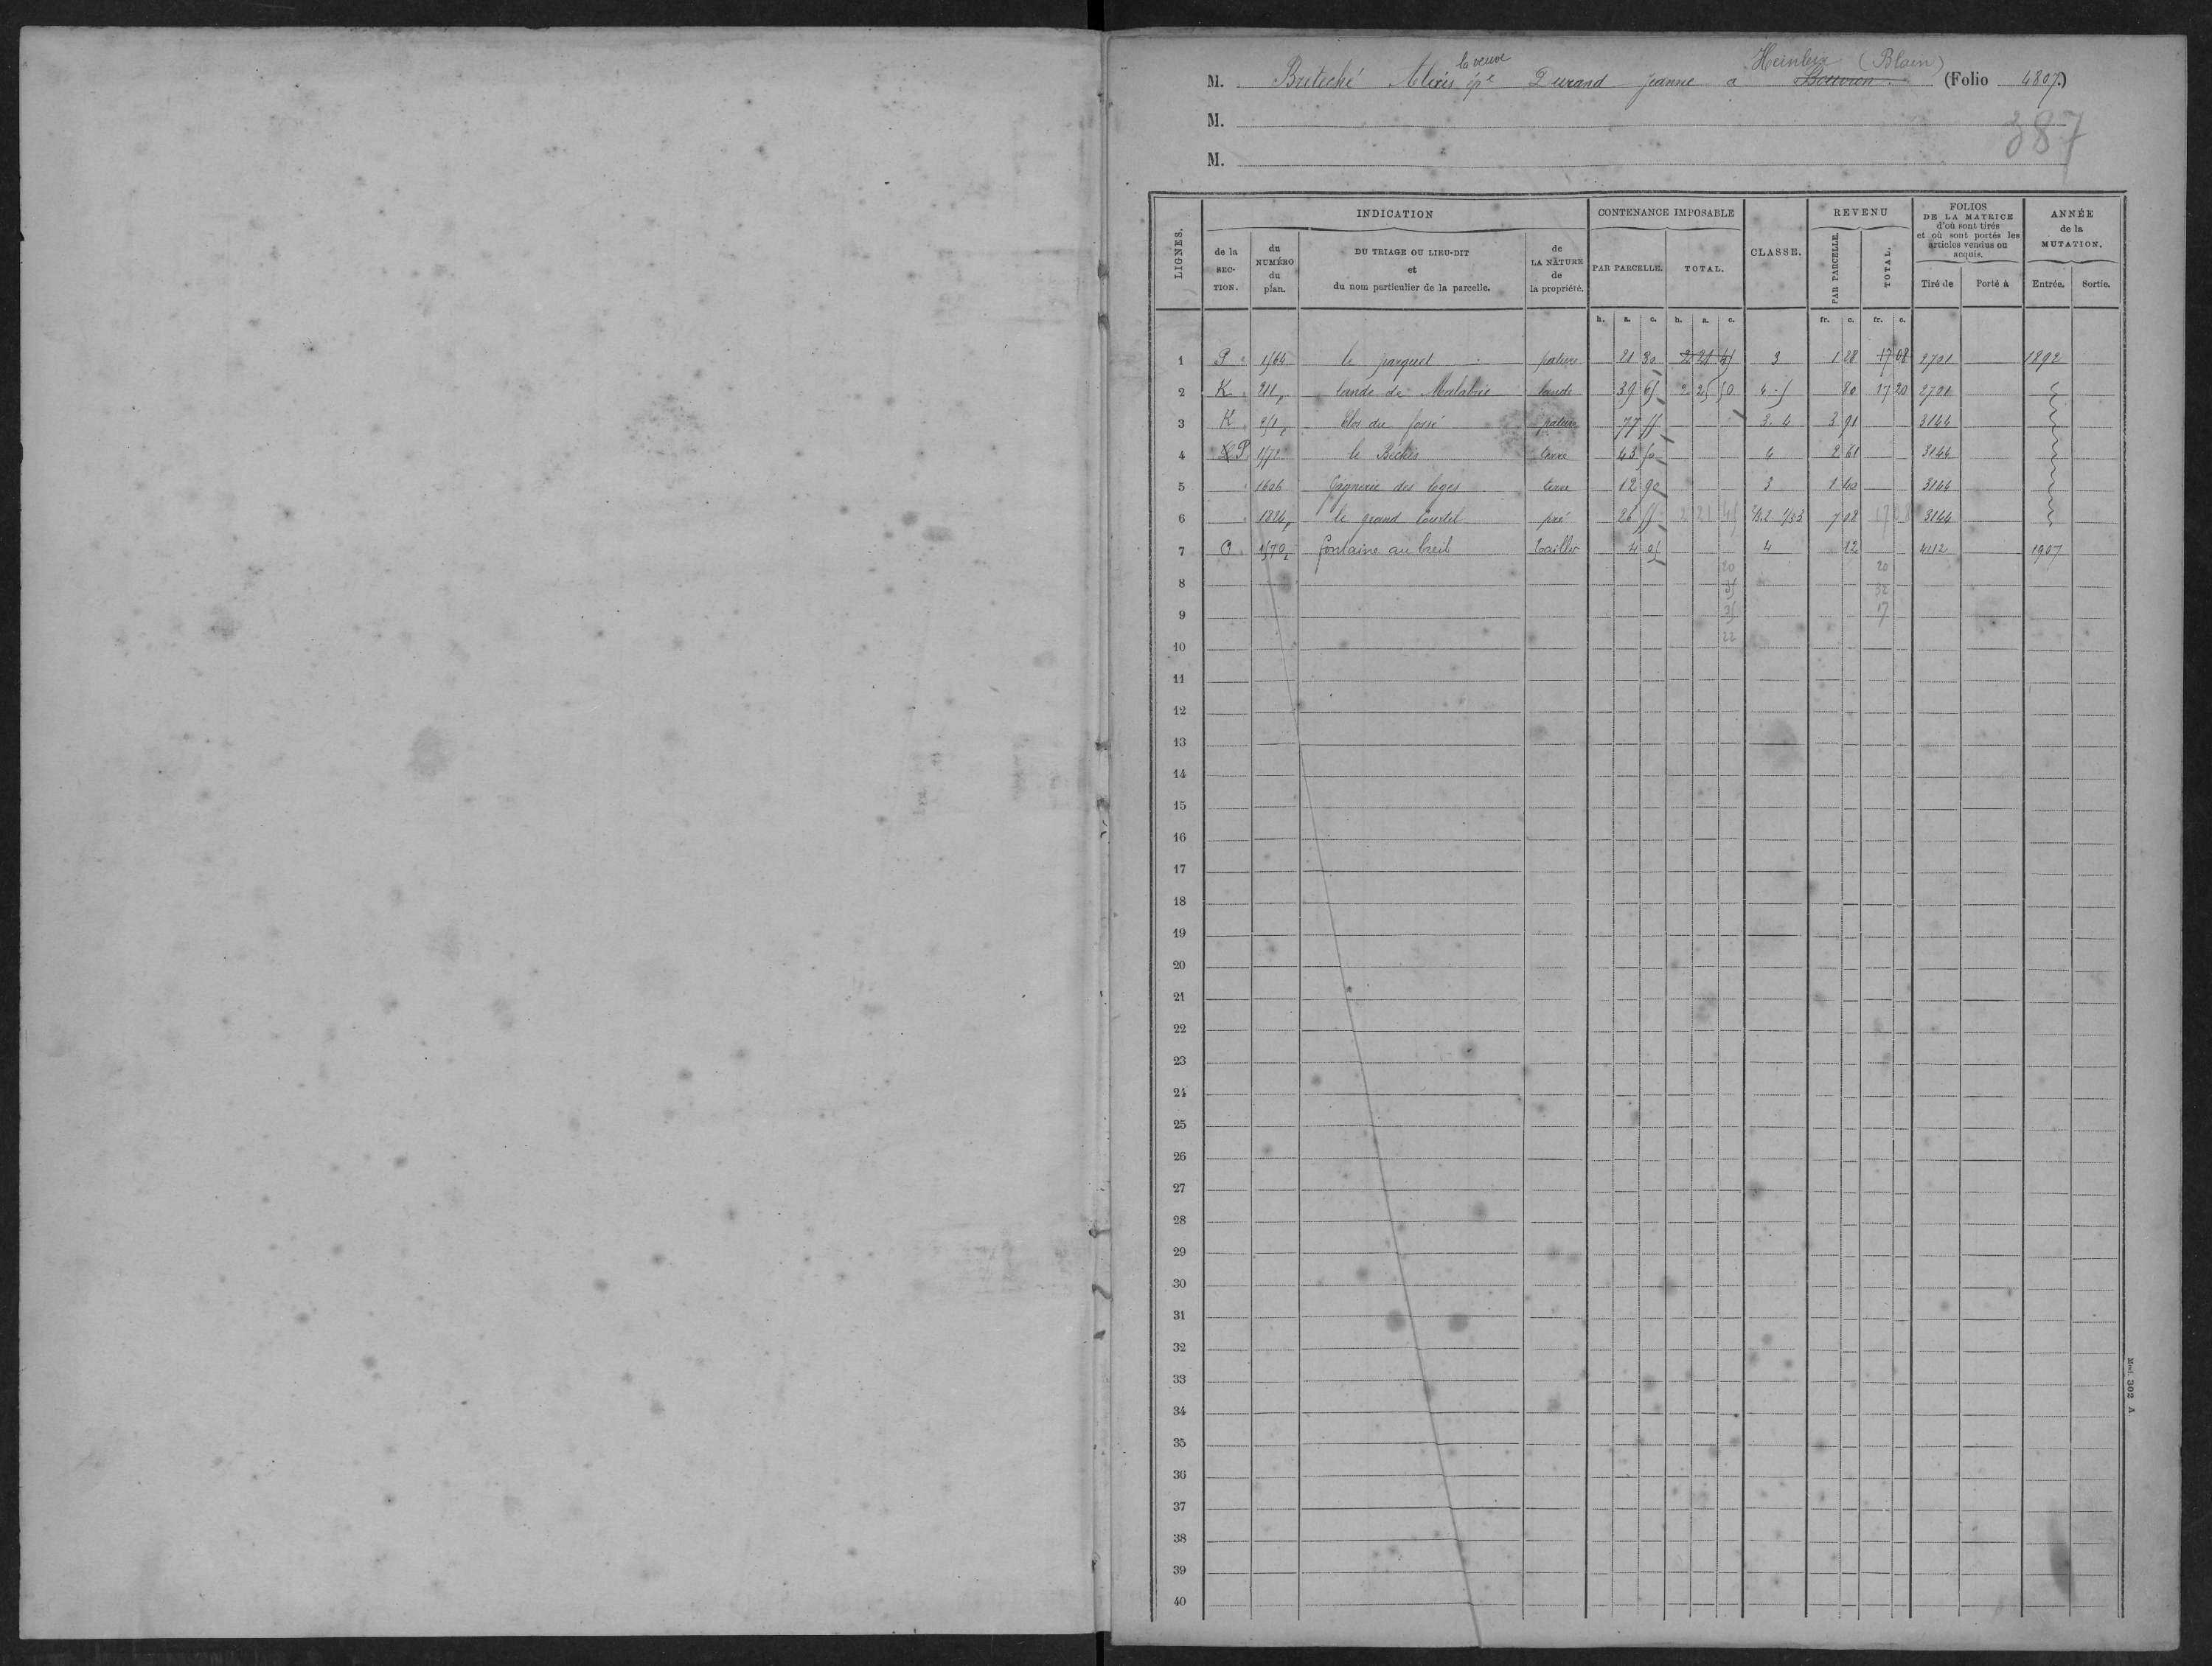 la veuve Heinleix (Blain)
M. Bretéché Alexis épe Durand Jeanne a Bouvron (Folio 4807)
M.
387
M.
LIGNES.
INDICATION
CONTENANCE IMPOSABLE
CLASSE.
REVENU
FOLIOS DE LA MATRICE d'où sont tirés et où sont portés les articles vendus ou acquis.
ANNÉE de la MUTATION.
de la SECTION.
du NUMÉRO du plan.
DU TRIAGE OU LIEU-DIT et du nom particulier de la parcelle.
de LA NATURE de la propriété.
PAR PARCELLE.
TOTAL.
PAR PARCELLE.
TOTAL.
Tiré de
Porté à
Entrée.
Sortie.
h. a. c. h. a. c. fr. c. fr. c.
1 P 1564 le parquet pature 21 30 2 21 45 3 1 28 17 08 2701 1892
2 K 211 lande de lande 39 65 2 25 50 4-5 80 17 20 2701
3 K 251 Clos du fossé pature 77 55 3.4 3 91 3144
4 P 1572 le terre 43 50 4 2 61 3144
5 1606 Gagnerie des loges terre 12 90 3 3144
6 1824 le grand Courtil pré 26 55 2 21 45 7 08 17 08 3144
7 O 1570 fontaine au breil taillis 4 05 4 12 4112 1907
20 20
8
35 32
9
35 17
22
10
11
12
13
14
15
16
17
18
19
20
21
22
23
24
25
26
27
28
29
30
31
32
33
34
35
36
37
38
39
40
Mod. 302 A